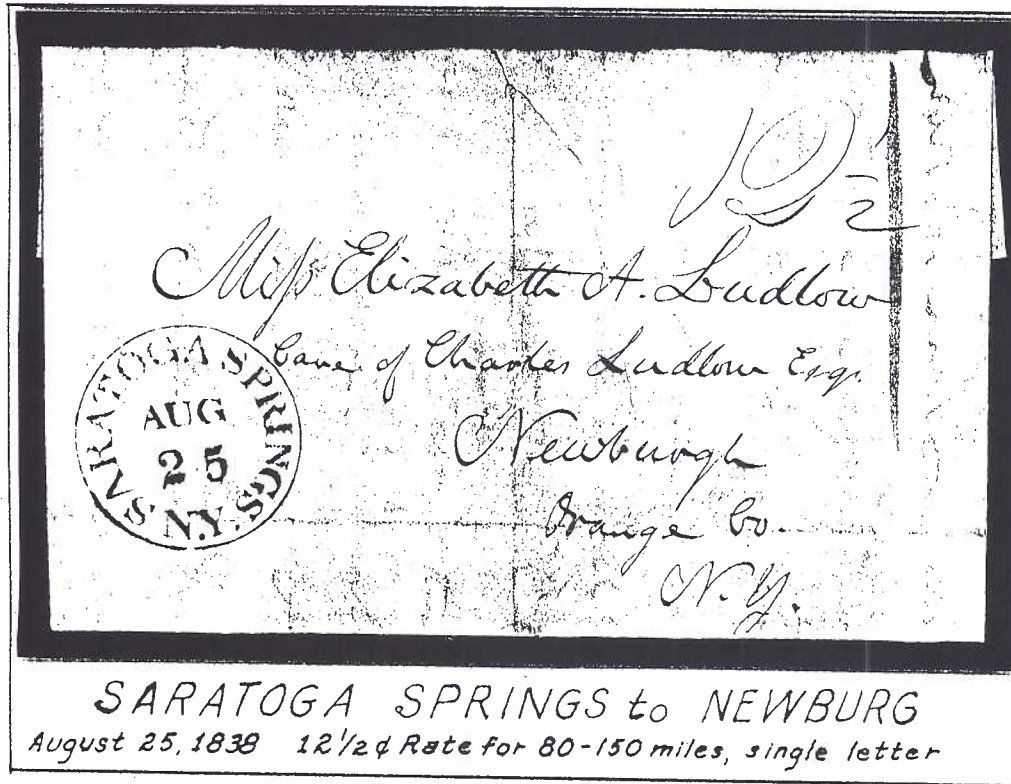 12 1/2
Miſs Elizabeth A. Ludlow
Care of Charles Ludlow Esqr.
Newburgh
Orange Co.
N.Y.
SARATOGA SPRINGS
AUG
25
N.Y.
SARATOGA SPRINGS to NEWBURG
August 25, 1838 12 1/2 ¢ Rate for 80-150 miles, single letter